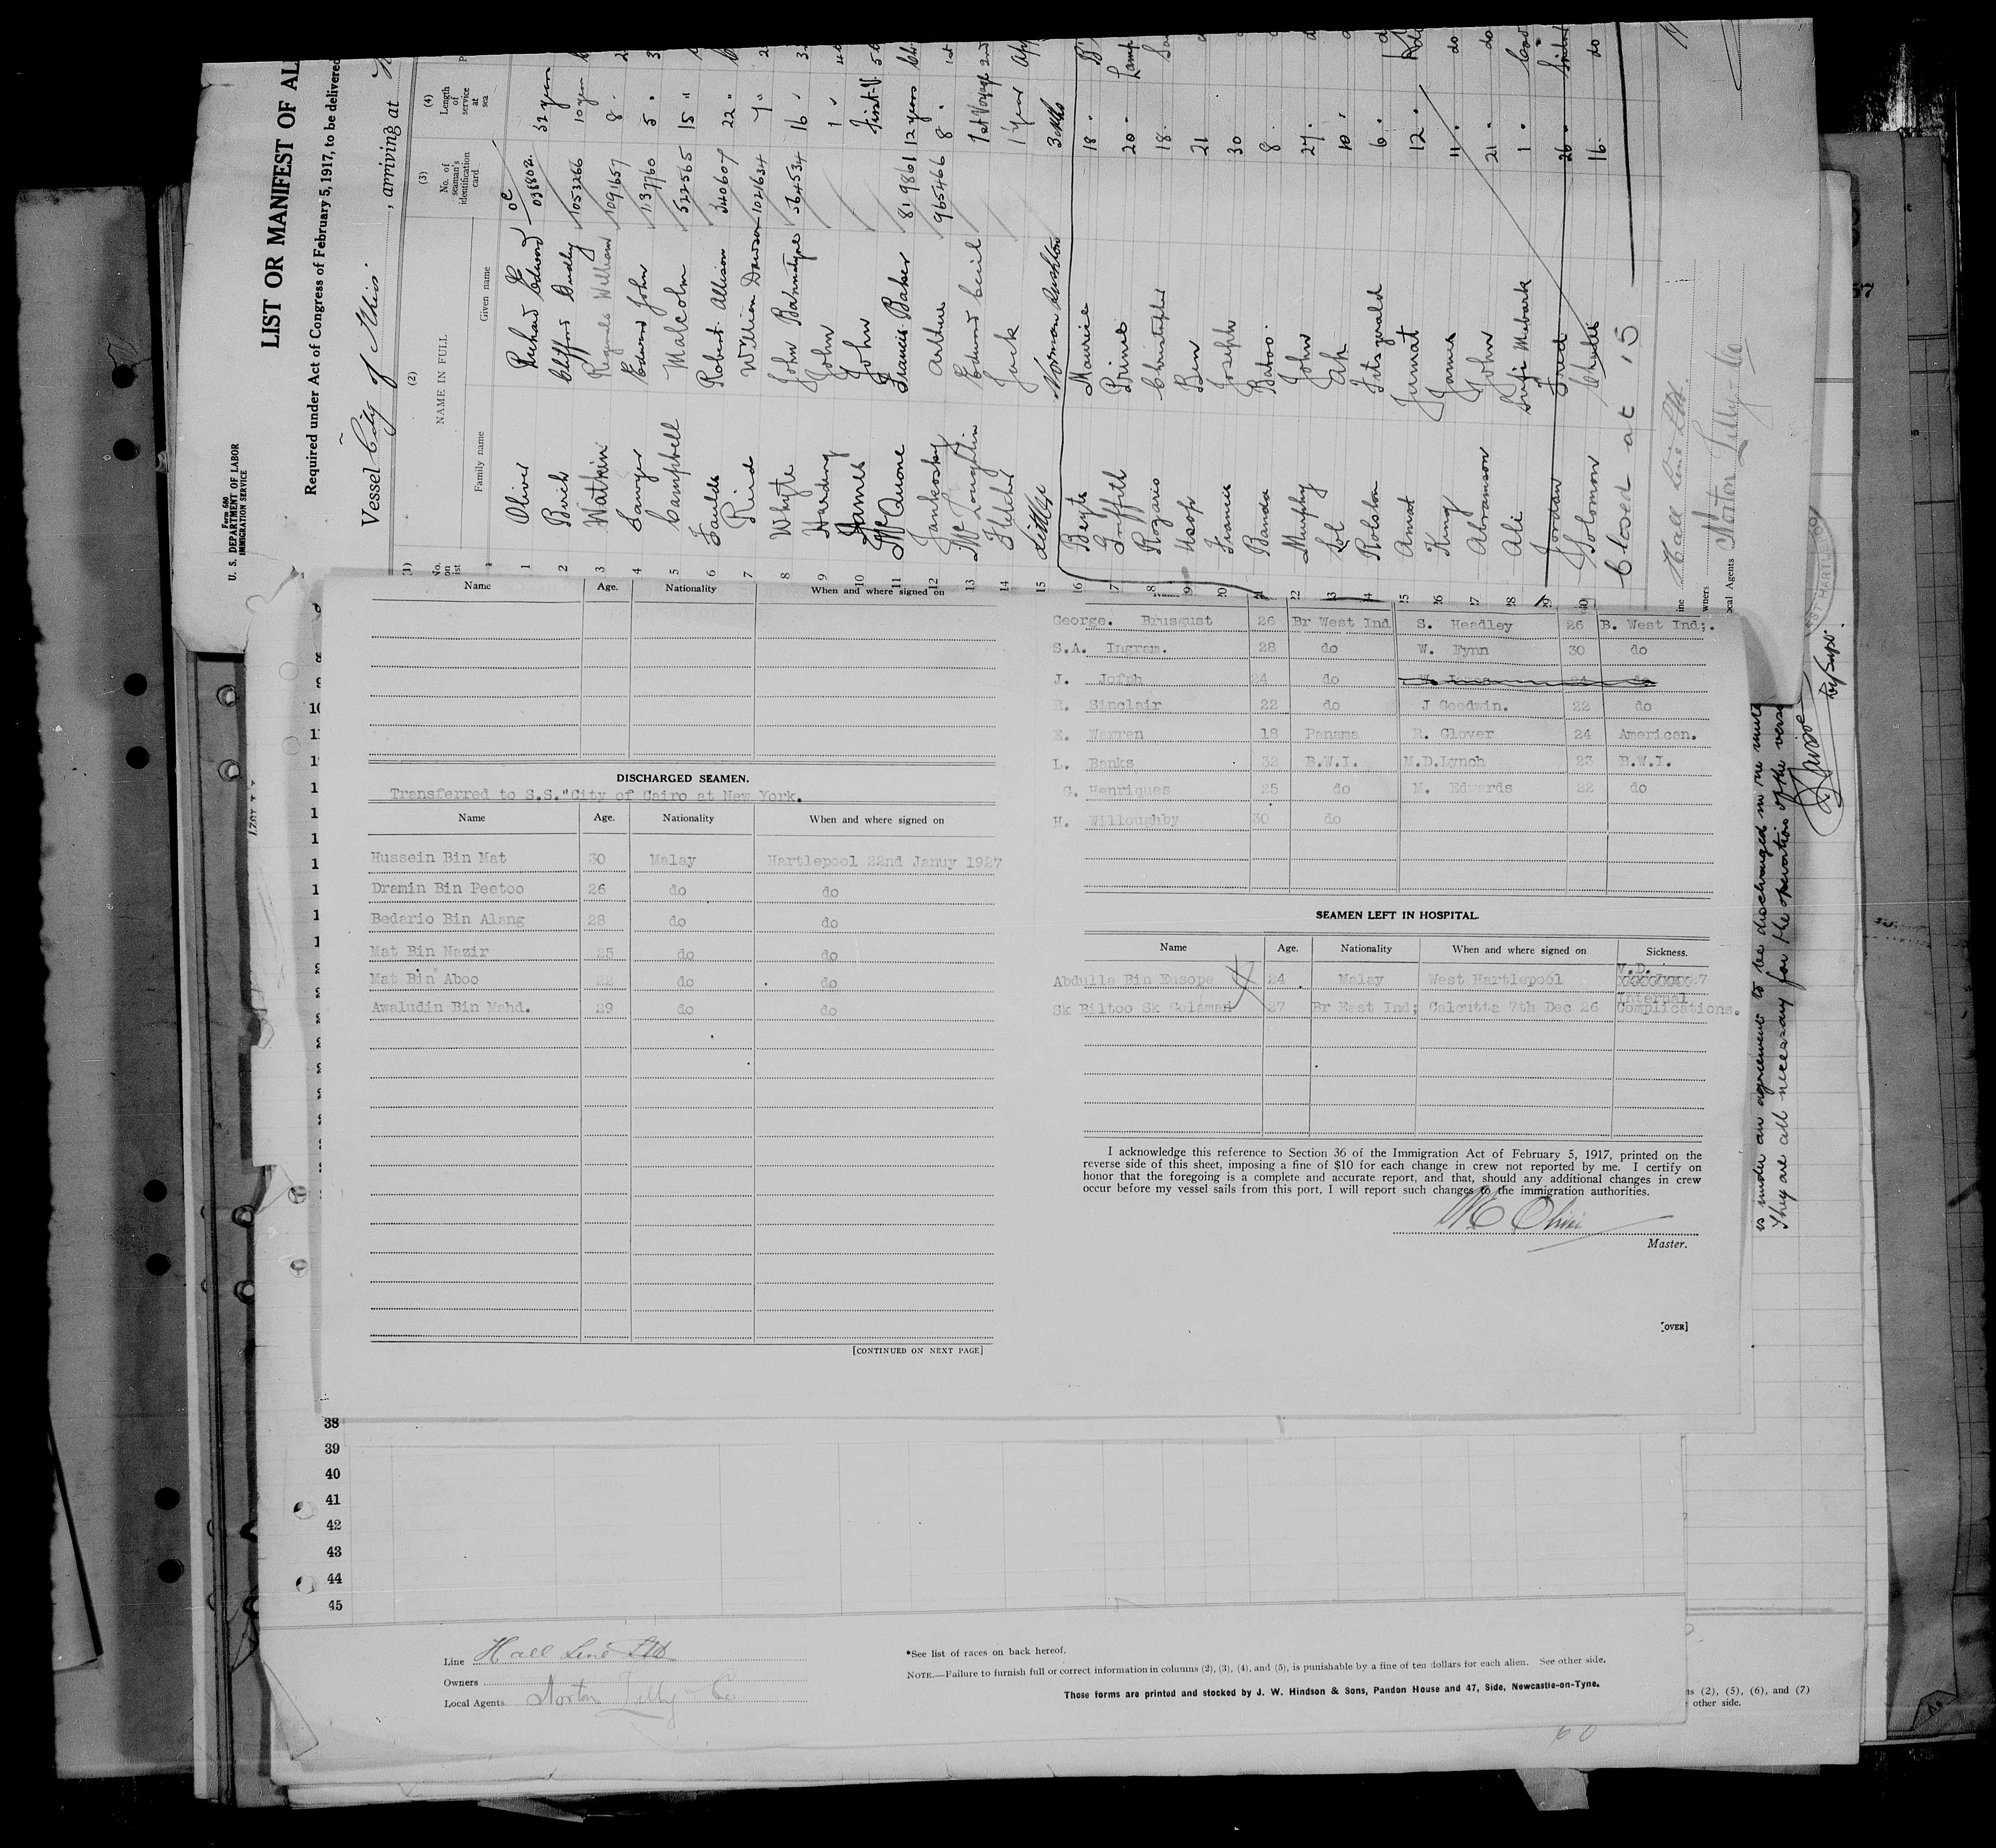 Form 680
U. S. DEPARTMENT OF LABOR
IMMIGRATION SERVICE
LIST OR MANIFEST OF AL
Required under Act of Congress of February 5, 1917, to be delivered
Vessel City of , arriving at
(1) (2) (3) (4)
No. on list
NAME IN FULL
Family name Given name
No. of seaman's identification card.
Length of service at sea
1 Oliver Richard Edward 32 years
2 Birch Clifford Dudley 1053266 10 years
3 Watkin Reginald William 1091657 8
4 Sawyer Edward John 1137760 5
5 Campbell Malcolm 522565 15 "
6 Faulds Robert Allison 340607 22 "
7 Rird William Dawson 1021634 7 "
8 Whyte John 564534 16
9 Harding John 1
10 James John First V.
11 McQuone Francis Baker 819861 12 years
12 Jankosky Arthur 965466 8
13 McLoughlin Edward Cecil 1st Voyage
14 Jack 1 year
15 Norman Rushton
16 Beyts Maurice 18
17 Griffith Prince 20
18 Rozario Christopher 18
19 Usop Ben 21
20 Francis Joseph 30
21 Banda Baboo 8
22 Murphy John 27
23 Sol Ah 10
24 Rolston Fitzgerald 6
25 Amat Jumat 12
26 King James 11
27 Abramson John 21
28 Ali Sufi Mubarak 1
29 Jordan 26
30 Solomon Charles 16
Closed at 15
Hall Line Ltd.
Owners
Local Agents Norton Lilly & Co
Name Age. Nationality When and where signed on
DISCHARGED SEAMEN.
Transferred to S.S."City of Cairo at New York.
Name Age. Nationality When and where signed on
Hussein Bin Mat 30 Malay Hartlepool 22nd Januy 1927
Dramin Bin Peetoo 26 do do
Bedario Bin Alang 28 do do
Mat Bin Nazir 25 do do
Mat Bin Aboo 22 do do
Awaludin Bin Mahd. 29 do do
[CONTINUED ON NEXT PAGE]
George. Brusgust 26 Br West Ind S. Headley 26 B. West Ind;.
S.A. Ingram. 28 do W. Fynn 30 do
J. Jofph 24 do
E. Sinclair 22 do J Goodwin. 22 do
E. Warren 18 Panama R. Glover 24 American.
L. Banks 32 B.W.I. M.D.Lynch 23 B.W.I.
G. Henriques 25 do M. Edwards 22 do
H. Willoughby 30 do
SEAMEN LEFT IN HOSPITAL.
Name Age. Nationality When and where signed on Sickness.
Abdulla Bin Eusope 24 Malay West Hartlepool V.D.
Sk Biltoo Sk Golaman 27 Br East Ind; Calcutta 7th Dec 26 Internal Complications.
I acknowledge this reference to Section 36 of the Immigration Act of February 5, 1917, printed on the
reverse side of this sheet, imposing a fine of $10 for each change in crew not reported by me. I certify on
honor that the foregoing is a complete and accurate report, and that, should any additional changes in crew
occur before my vessel sails from this port, I will report such changes to the immigration authorities.
Master.
[OVER]
is under an agreement to be discharged in
They are all necessary for the operations of the
38
39
40
41
42
43
44
45
Line Hall Line Ltd
Owners
Local Agents Norton Lilly & Co
*See list of races on back hereof.
NOTE.—Failure to furnish full or correct information in columns (2), (3), (4), and (5), is punishable by a fine of ten dollars for each alien. See other side.
These forms are printed and stocked by J. W. Hindson & Sons, Pandon House and 47, Side, Newcastle-on-Tyne.
ns (2), (5), (6), and (7)
other side.
60